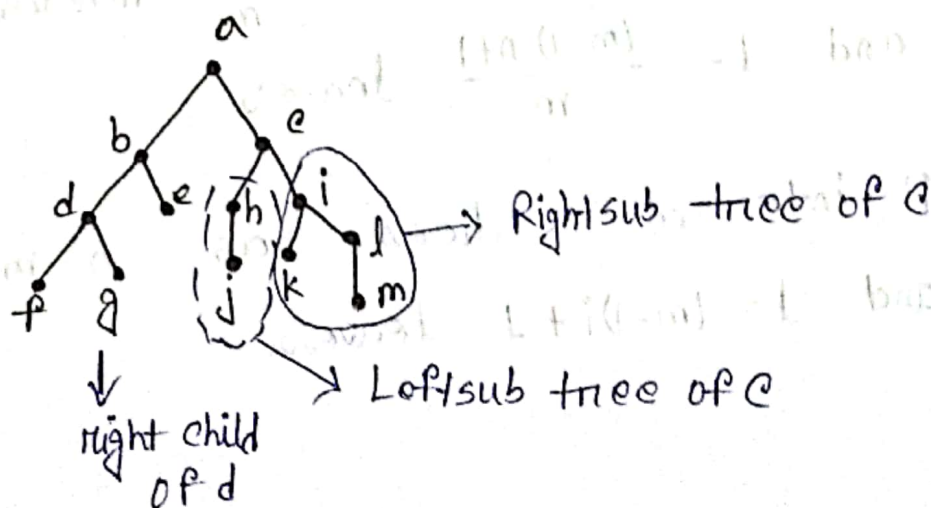 a
b
c
d
e
h
i
f
g
j
k
l
m
Right sub tree of c
Left sub tree of c
right child
of d